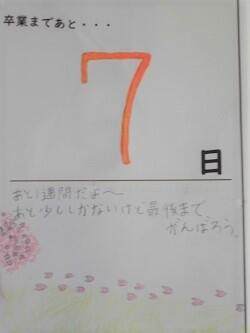 卒業まであと・・・
7
日
あと1週間だよ〜
あと少ししかないけど最後まで、
がんばろう。